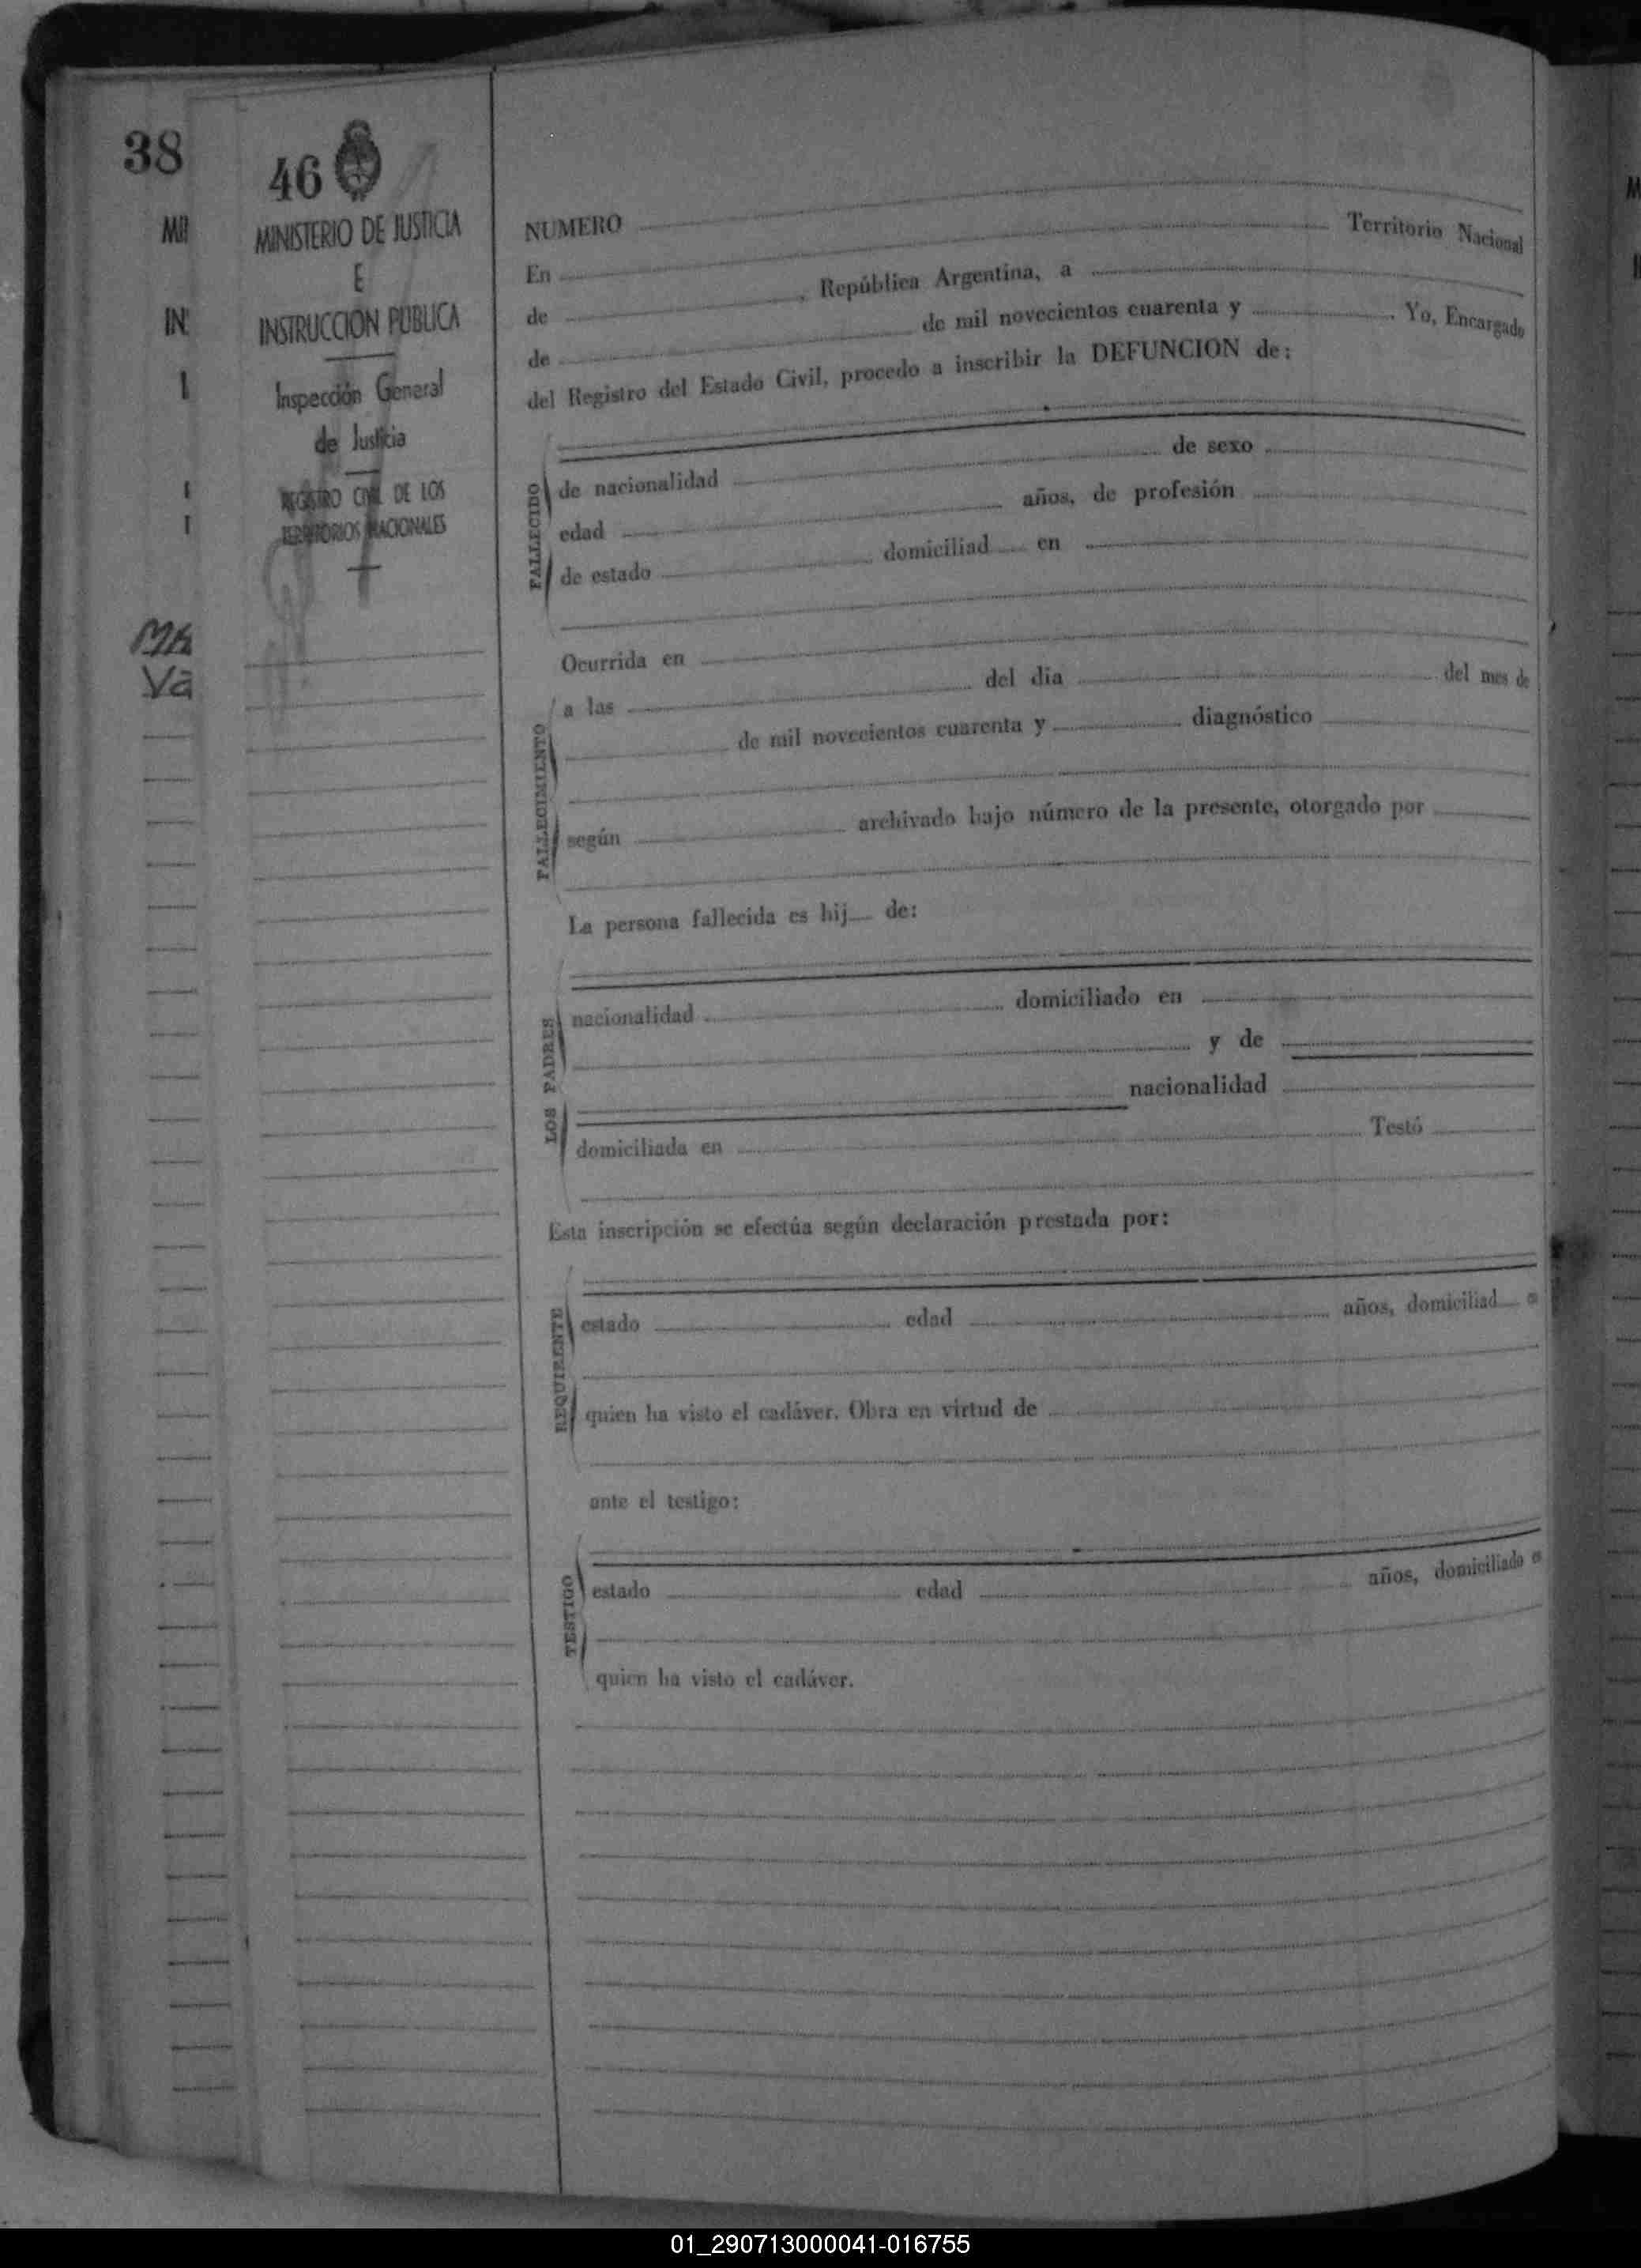 38
46
MINISTERIO DE JUSTICIA
E
INSTRUCCION PUBLICA
Inspección General
de Justicia
REGISTRO CIVIL DE LOS
TERRITORIOS NACIONALES
MI
IN
Ma
Va
NUMERO
En Territorio Nacional
de , República Argentina, a
de de mil novecientos cuarenta y . Yo, Encargado
del Registro del Estado Civil, procedo a inscribir la DEFUNCION de:
FALLECIDO
de nacionalidad de sexo
edad años, de profesión
de estado domiciliad en
Ocurrida en
FALLECIMIENTO
a las del dia del mes de
de mil novecientos cuarenta y diagnóstico
según archivado bajo número de la presente, otorgado por
La persona fallecida es hij de:
LOS PADRES
nacionalidad domiciliado en
y de
nacionalidad
domiciliada en Testó
Esta inscripción se efectúa según declaración prestada por:
REQUIRENTE
estado edad años, domiciliad
quien ha visto el cadáver. Obra en virtud de
ante el testigo:
TESTIGO
estado edad años, domiciliado
quien ha visto el cadáver.
01_290713000041-016755